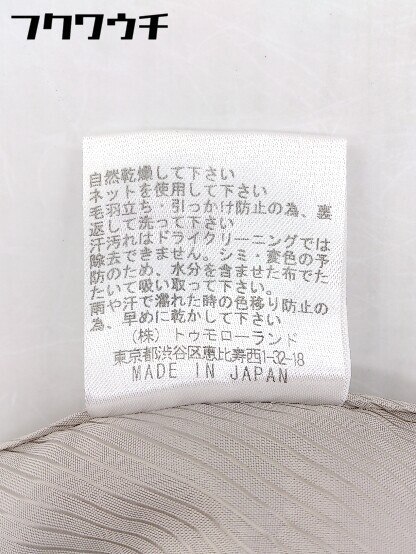 フクワウチ
自然乾燥して下さい
ネットを使用して下さい
毛羽立ち・引っかけ防止の為、裏
返して洗って下さい
汗汚れはドライクリーニングでは
除去できません。シミ・変色の予
防のため、水分を含ませた布でた
たいて吸い取って下さい。
雨や汗で濡れた時の色移り防止の
為、早めに乾かして下さい
(株) トゥモローランド
東京都渋谷区恵比寿西1-32-18
MADE IN JAPAN